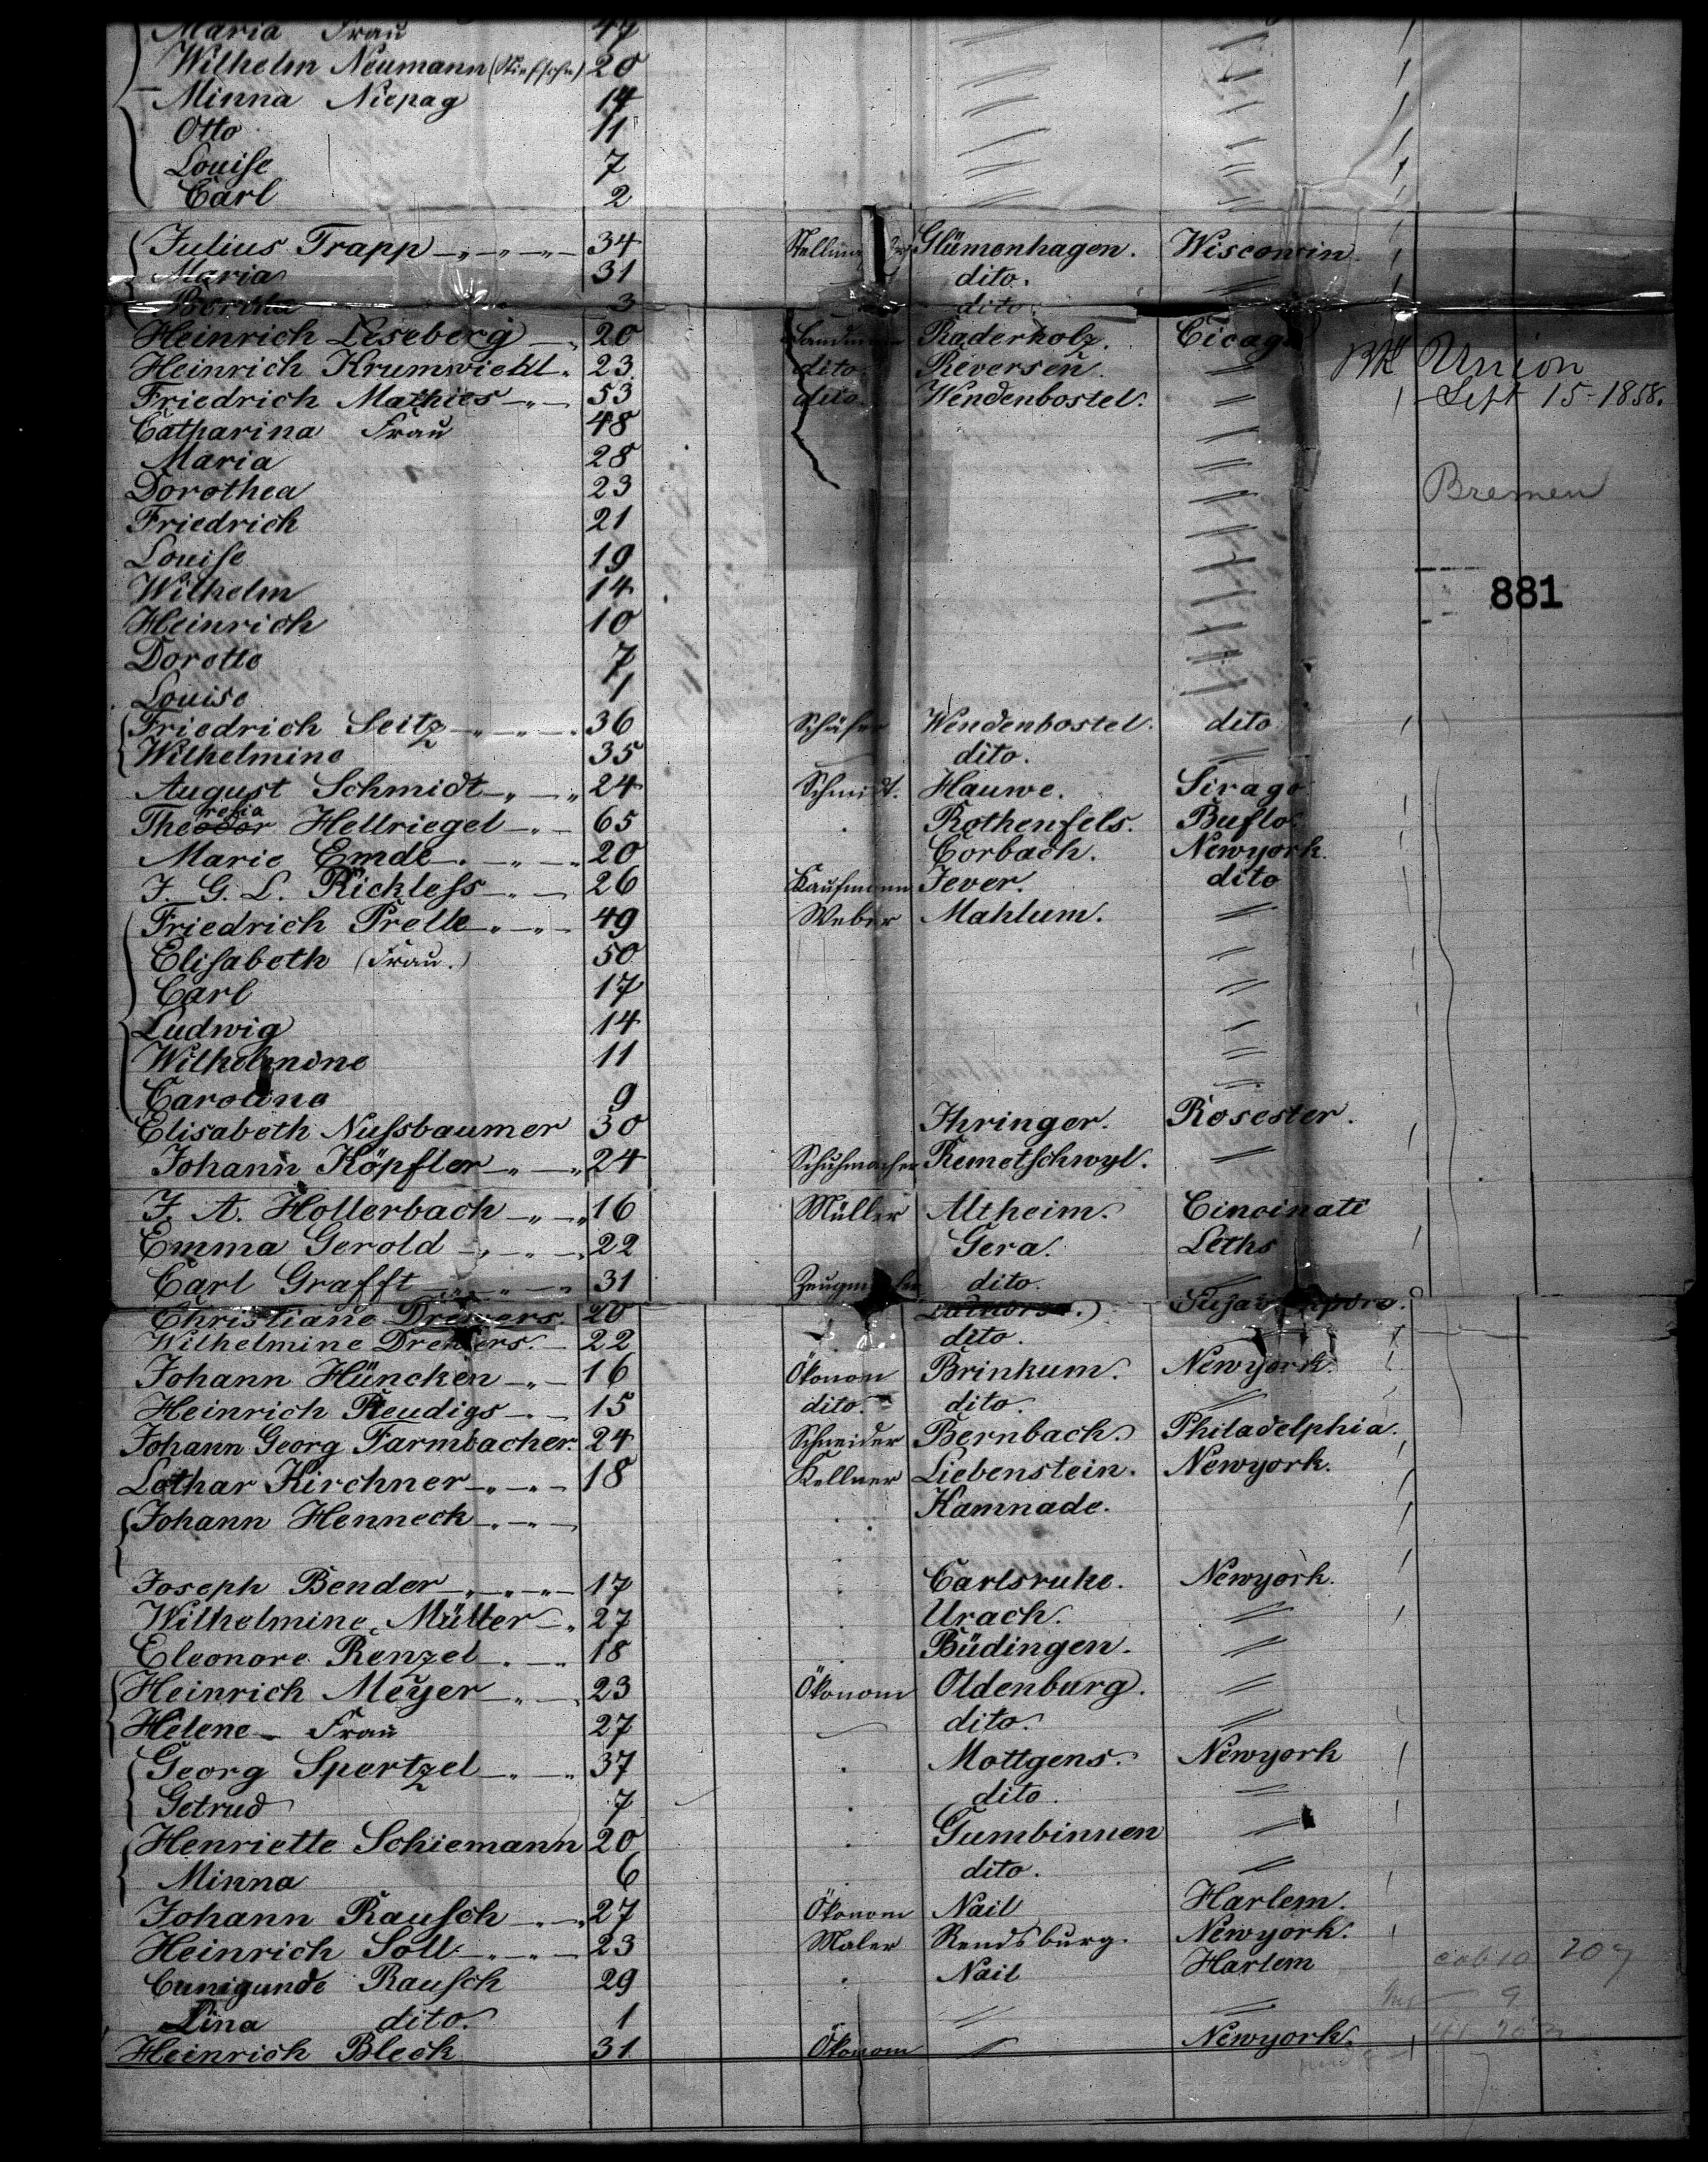 Maria Frau 49 〃 〃
Wilhelm Neumann (Stiefsohn) 20 〃 〃
Minna Niepag 14 〃 〃
Otto 11 〃 〃
Louise 7 〃 〃
Carl 2 〃 〃
Julius Trapp 34 Glümenhagen. Wisconsin
Maria 31 dito. 〃
Bertha 3 dito
Heinrich Leseberg 20 Raderholz. Cicago
Heinrich Krumwiehl. 23 dito. Reversen. 〃 Bk Union
Friedrich Mathies 53 dito. Wendenbostel. 〃 Sept 15-1858.
Catharina Frau 48 〃
Maria 28 〃
Dorothea 23 〃 Bremen
Friedrich 21 〃
Louise 19 〃
Wilhelm 14 〃 881
Heinrich 10 〃
Dorette 7 〃
Louise 1 〃
Friedrich Seitz 36 Schäfer Wendenbostel. dito
Wilhelmine 35 dito. 〃
August Schmidt 24 Schmidt. Hauwe. Sirago
Theodor resia Hellriegel 65 Rothenfels. Buflo.
Marie Emde 20 Corbach. Newyork.
J. G. L. Rickless 26 Kaufmann Jever. dito
Friedrich Prelle 49 Weber Mahlum. 〃
Elisabeth (Frau.) 50 〃
Carl 17 〃
Ludwig 14 〃
Wilhelmine 11 〃
Caroline 9 〃
Elisabeth Nussbaumer 30 Ihringer. Rosester.
Johann Köpfler 24 Schuhmacher Remetschwyl. 〃
J. A. Hollerbach 16 Müller Altheim. Cincinati
Emma Gerold 22 Gera. Leths
Carl Grafft 31 dito. 〃
Christiane Drewers. 20
Wilhelmine Drewers. 22 dito. 〃
Johann Hüncken 16 Ökonom Brinkum. Newyork.
Heinrich Reudigs 15 dito. dito. 〃
Johann Georg Farmbacher. 24 Schneider Bernbach. Philadelphia.
Lothar Kirchner 18 Kellner Liebenstein. Newyork.
Johann Henneck Kamnade.
Joseph Bender 17 Carlsruhe. Newyork.
Wilhelmine Müller 27 Urach. 〃
Eleonore Renzel 18 Büdingen. 〃
Heinrich Meyer 23 Ökonom Oldenburg. 〃
Helene Frau 27 dito. 〃
Georg Spertzel 37 Mottgens. Newyork
Getrud 7 dito. 〃
Henriette Schiemann 20 Gumbinnen 〃
Minna 6 dito. 〃
Johann Rausch 27 Ökonom Nail Harlem.
Heinrich Soll 23 Maler Rendsburg. Newyork.
Cunigunde Rausch 29 Nail Harlem cab 10 209
Lina dito. 1 〃 〃 9
Heinrich Bleck 31 Ökonom 〃 Newyork.